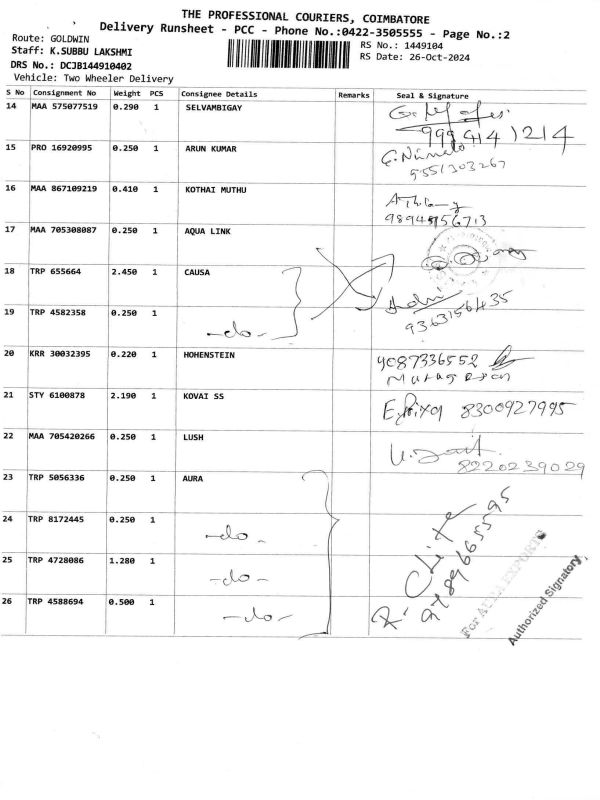 THE PROFESSIONAL COURIERS, COIMBATORE
Delivery Runsheet - PCC - Phone No.:0422-3505555 - Page No.:2
Route: GOLDWIN
RS No.: 1449104
Staff: K.SUBBU LAKSHMI
RS Date: 26-Oct-2024
DRS No.: DCJB144910402
Vehicle: Two Wheeler Delivery
S No Consignment No Weight PCS Consignee Details Remarks Seal & Signature
14 MAA 575077519 0.290 1 SELVAMBIGAY
15 PRO 16920995 0.250 1 ARUN KUMAR
9551303267
16 MAA 867109219 0.410 1 KOTHAI MUTHU
17 MAA 705308087 0.250 1 AQUA LINK
18 TRP 655664 2.450 1 CAUSA
19 TRP 4582358 0.250 1 -do-
9363156435
20 KRR 30032395 0.220 1 HOHENSTEIN
9087336552
21 STY 6100878 2.190 1 KOVAI SS
8300927995
22 MAA 705420266 0.250 1 LUSH
8220239029
23 TRP 5056336 0.250 1 AURA
24 TRP 8172445 0.250 1 -do-
25 TRP 4728086 1.280 1 -do-
26 TRP 4588694 0.500 1 -do-
9789665595
For AURA EXPORTS
Authorized Signatory